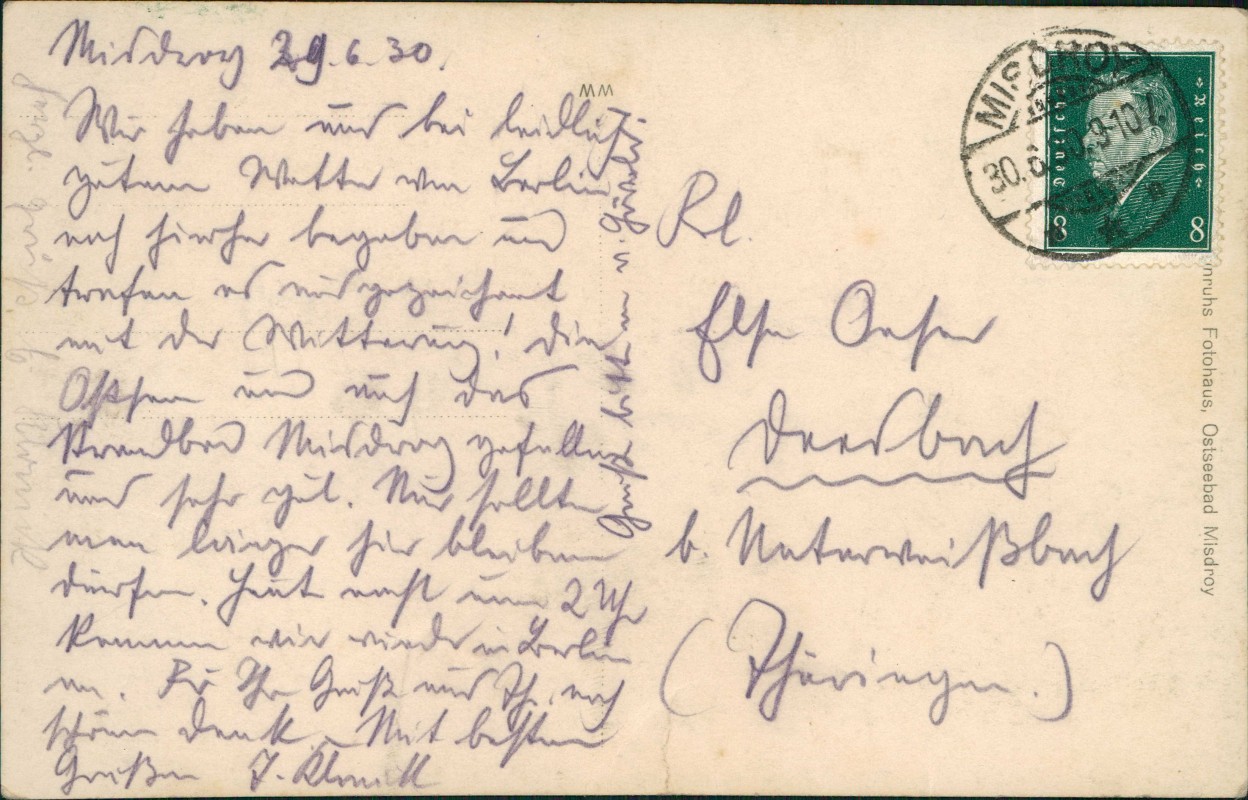 Misdroy 29.6.30.
Wir haben uns bei leidlich
gutem Wetter von Berlin
nach hierher begeben und
trafen es ausgezeichnet
mit der Witterung! Die
Ostsee und auch das
Strandbad Misdroy gefallen
uns sehr gut. Nur sollte
man länger hier bleiben
dürfen. Heut nacht um 2 Uhr
kommen wir wieder in Berlin
an. Für Ihr Gruß aus Th. noch
schönen Dank. Mit besten
Grüßen
Grüße bitte
Herzl. Grüße
MM
Frl.
Else Oeser
Deesbach
b. Unterweißbach
(Thüringen.)
MISDROY
30.6.30.9-10 V.
Deutsches Reich
8 8
nruhs Fotohaus, Ostseebad Misdroy